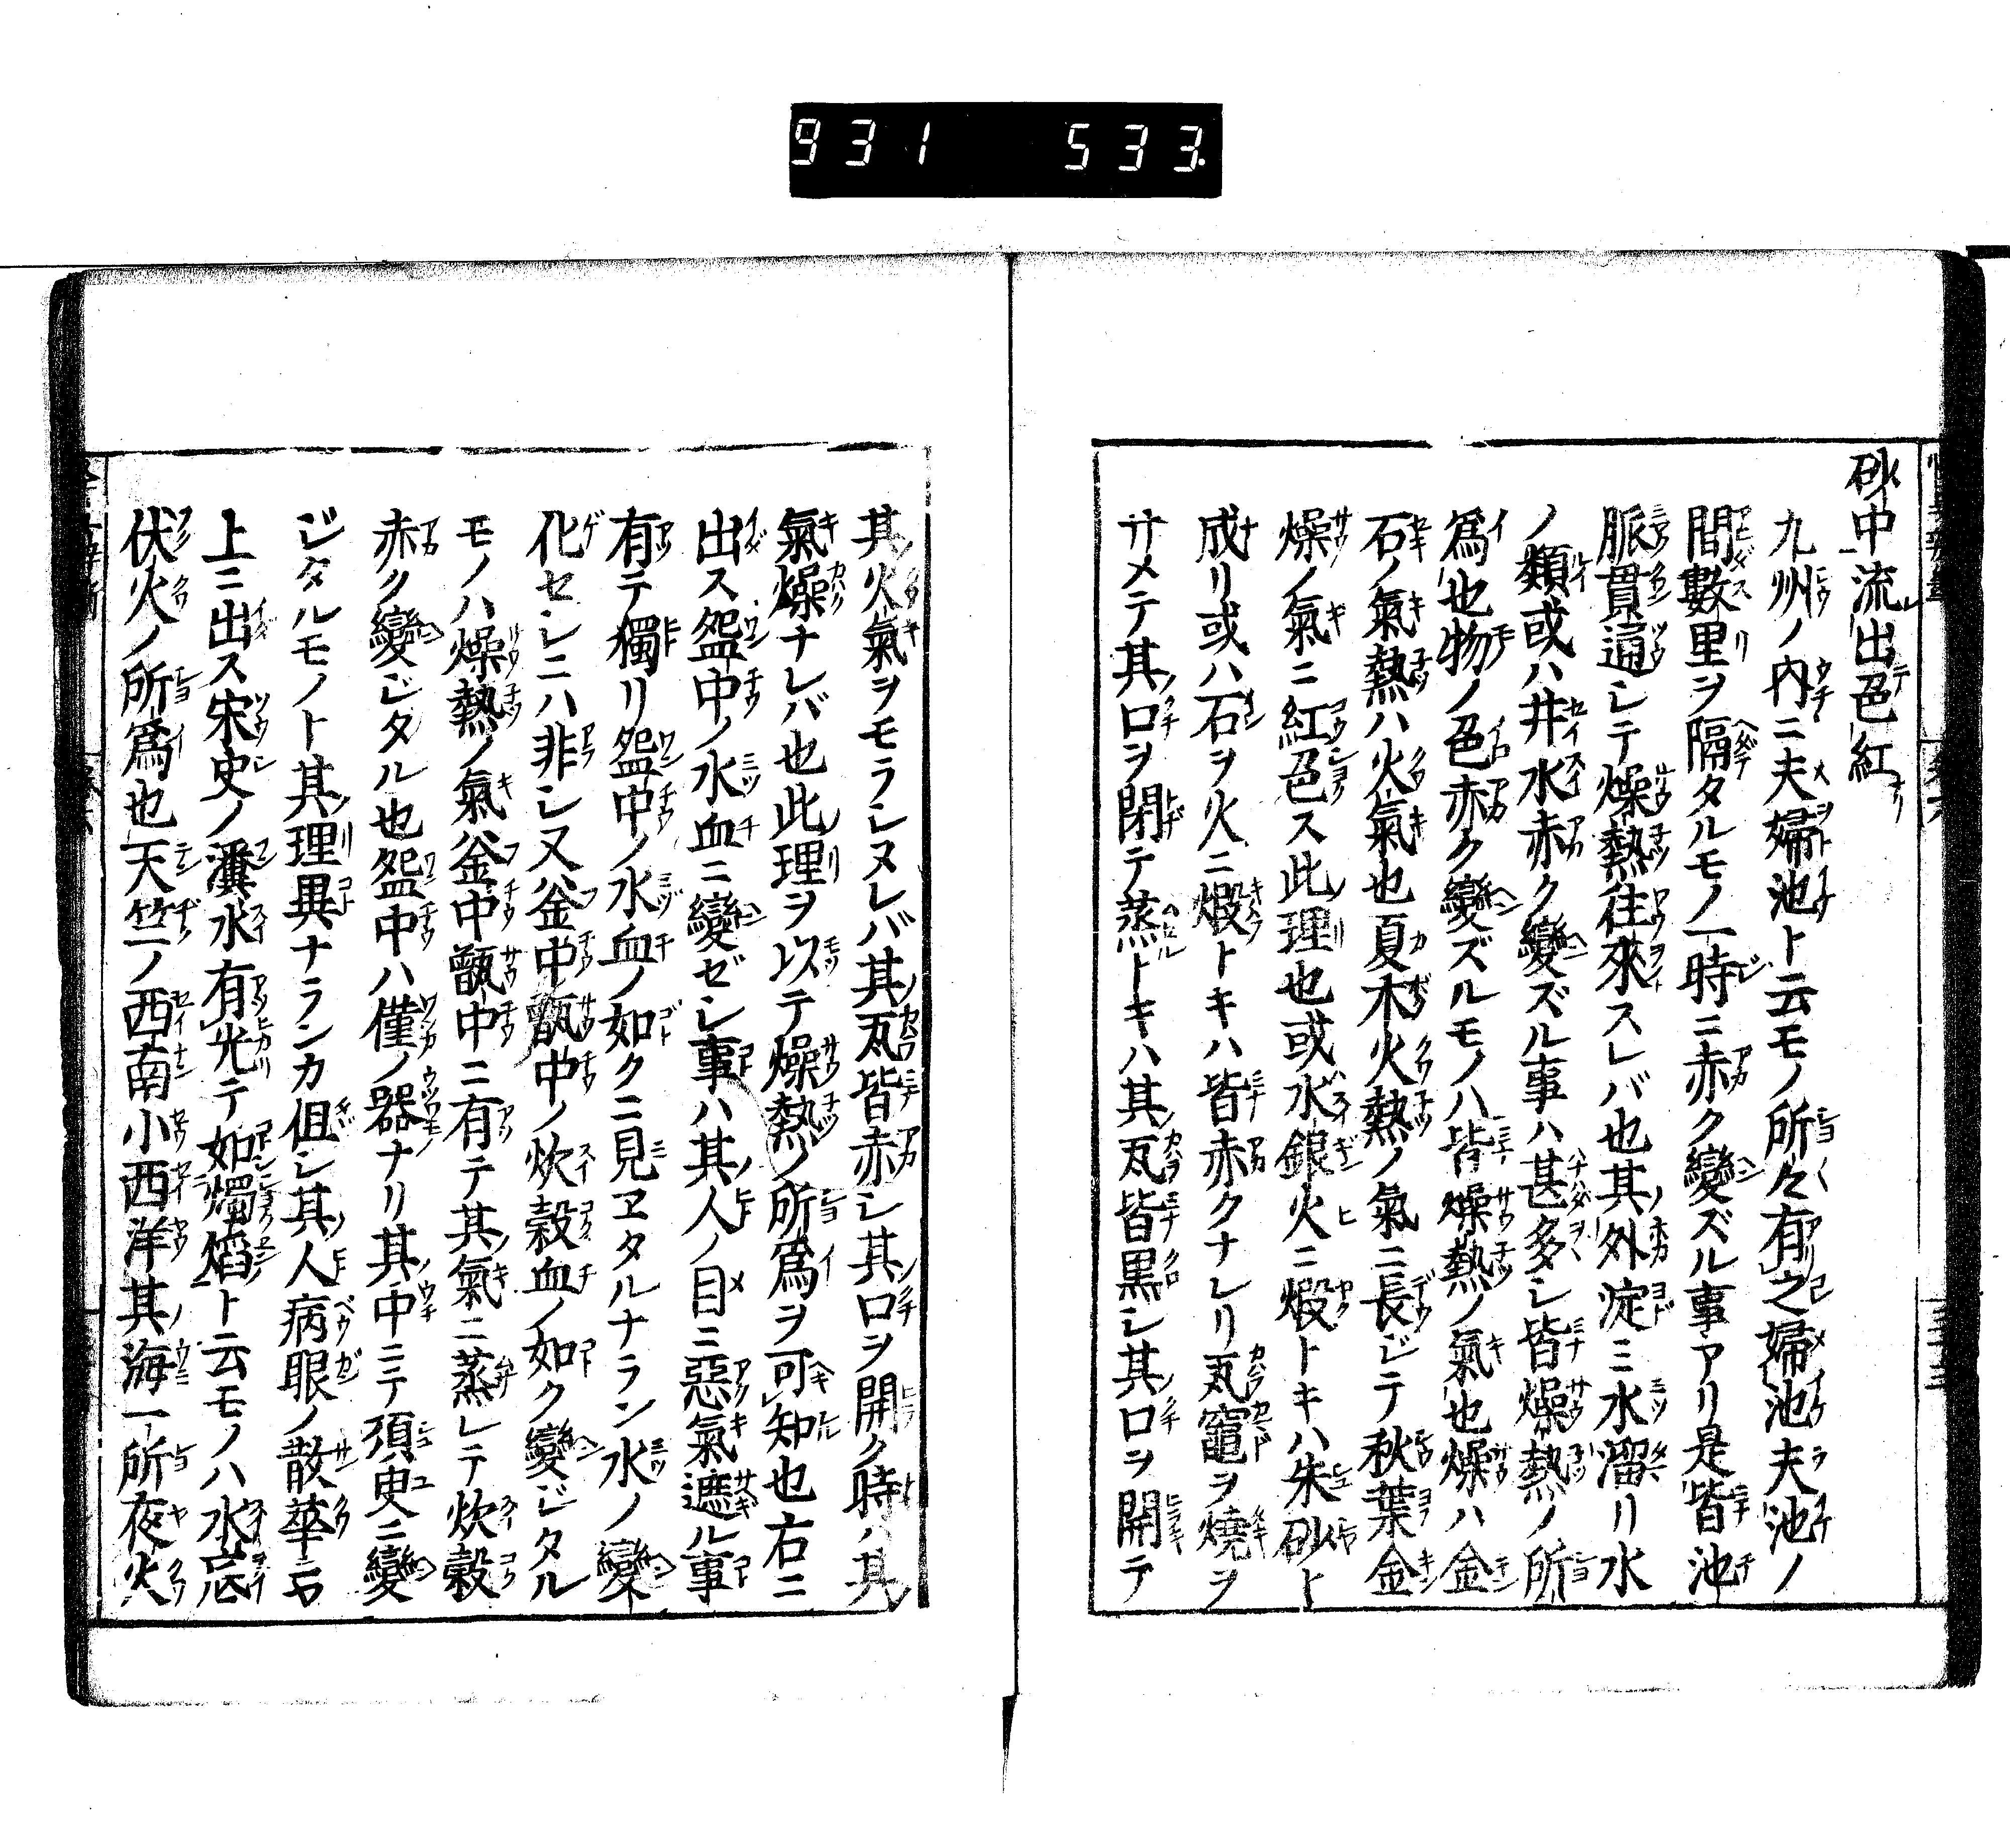 931 533
砂中流出色紅
九州ノ内ニ夫婦池ト云モノ所々有之婦池夫池ノ
間數里ヲ隔タルモノ一時ニ赤ク變ズル事アリ是皆池
脈貫通シテ燥熱往來スレバ也其外淀ミ水溜リ水
ノ類或ハ井水赤ク變ズル事ハ甚多シ皆燥熱ノ所
爲也物ノ色赤ク變ズルモノハ皆燥熱ノ氣也燥ハ金
石ノ氣熱ハ火氣也夏木火熱ノ氣ニ長ジテ秋葉金
燥ノ氣ニ紅色ス此理也或水銀火ニ煆トキハ朱砂ト
成リ或ハ石ヲ火ニ煆トキハ皆赤クナレリ瓦竈ヲ燒ヲ
サメテ其口ヲ閉テ蒸トキハ其瓦皆黒シ其口ヲ開テ
其火氣ヲモラシヌレバ其瓦皆赤シ其口ヲ開ク時ハ其
氣燥ナレバ也此理ヲ以テ燥熱ノ所爲ヲ可知也右ニ
出ス盌中ノ水血ニ變ゼシ事ハ其人ノ目ニ惡氣遮ル事
有テ獨リ盌中ノ水血ノ如クニ見ヱタルナラン水ノ變
化セシニハ非シ又釜中甑中ノ炊穀血ノ如ク變ジタル
モノハ燥熱ノ氣釜中甑中ニ有テ其氣ニ蒸レテ炊穀
赤ク變ジタル也盌中ハ僅ノ器ナリ其中ニテ須臾ニ變
ジタルモノト其理異ナランカ但シ其人病眼ノ散華ニ
上ニ出ス宋史ノ瀵水有光テ如燭熖ト云モノハ水底
伏火ノ所爲也天竺ノ西南小西洋其海一所夜火